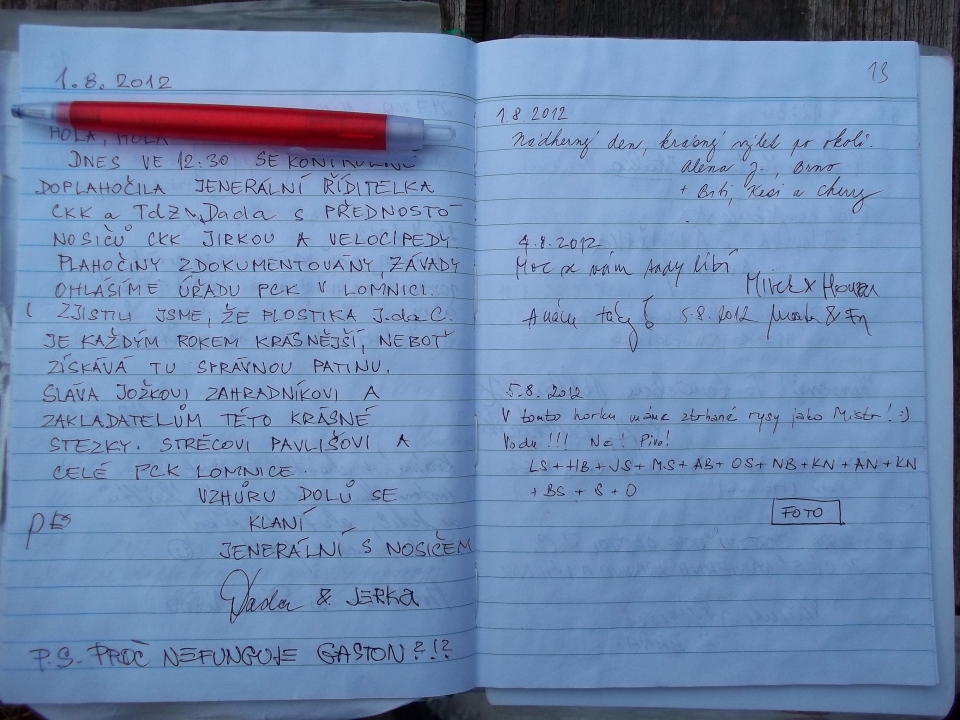 1.8.2012
HOLA, HOLA
DNES VE 12:30 SE KONTROLNĚ
DOPLAHOČILA JENERÁLNÍ ŘÍDITELKA
CKK a TdZ Dada S PŘEDNOSTO
NOSIČŮ CKK JIRKOU A VELOCIPEDY.
PLAHOČINY ZDOKUMENTOVÁNY, ZÁVADY
OHLÁSÍME ÚŘADU PCK V LOMNICI.
ZJISTILI JSME, ŽE PLOSTIKA J.da C.
JE KAŽDÝM ROKEM KRÁSNĚJŠÍ, NEBOŤ
ZÍSKÁVÁ TU SPRÁVNOU PATINU.
SLÁVA JOŽKOVI ZAHRADNÍKOVI A
ZAKLADATELŮM TÉTO KRÁSNÉ
STEZKY. STRÉCOVI PAVLIŠOVI A
CELÉ PCK LOMNICE.
VZHŮRU DOLŮ SE
KLANÍ
JENERÁLNÍ S NOSIČEM
Dada & JERKA
P.S. PROČ NEFUNGUJE GASTON?!?
13
1.8 2012
Nádherný den, krásný výlet po okolí.
Alena J., Brno
+ Brti, Kesi a Cherry
4.8.2012
Moc se nám tady líbí
5.8.2012
5.8.2012
V tomto horku máme ztrhané rysy jako Mistr! :)
Vodu!!! Ne! Pivo!
LS+HB+JS+MS+AB+OS+NB+KN+AN+KN
+ BS + S + O
FOTO